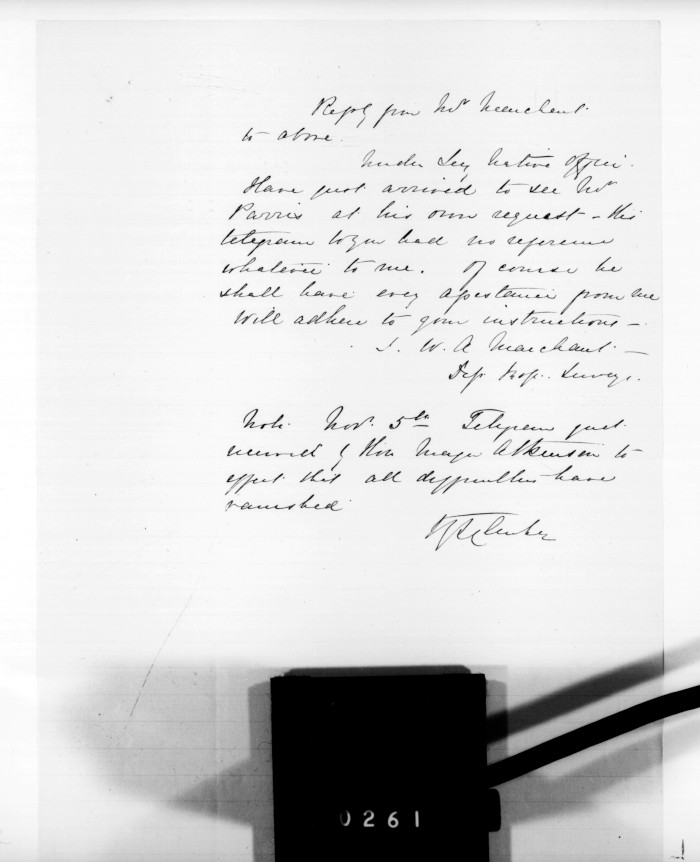 Reply from Mr Marchant
to above.
Under Secy Native Office.
Have just arrived to see Mr
Parris at his own request - His
telegram to you had no reference
whatever to me. Of course he
shall have every assistance from me
Will adhere to your instructions -
J. W. A Marchant -
Dep. Insp. Surveys.
Note Nov. 5th Telegram just
received by Hon Major Atkinson to
effect that all difficulties have
vanished
0261